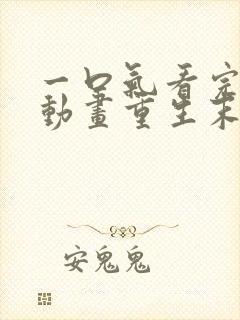 一口氣看完
動畫重生末
安鬼鬼